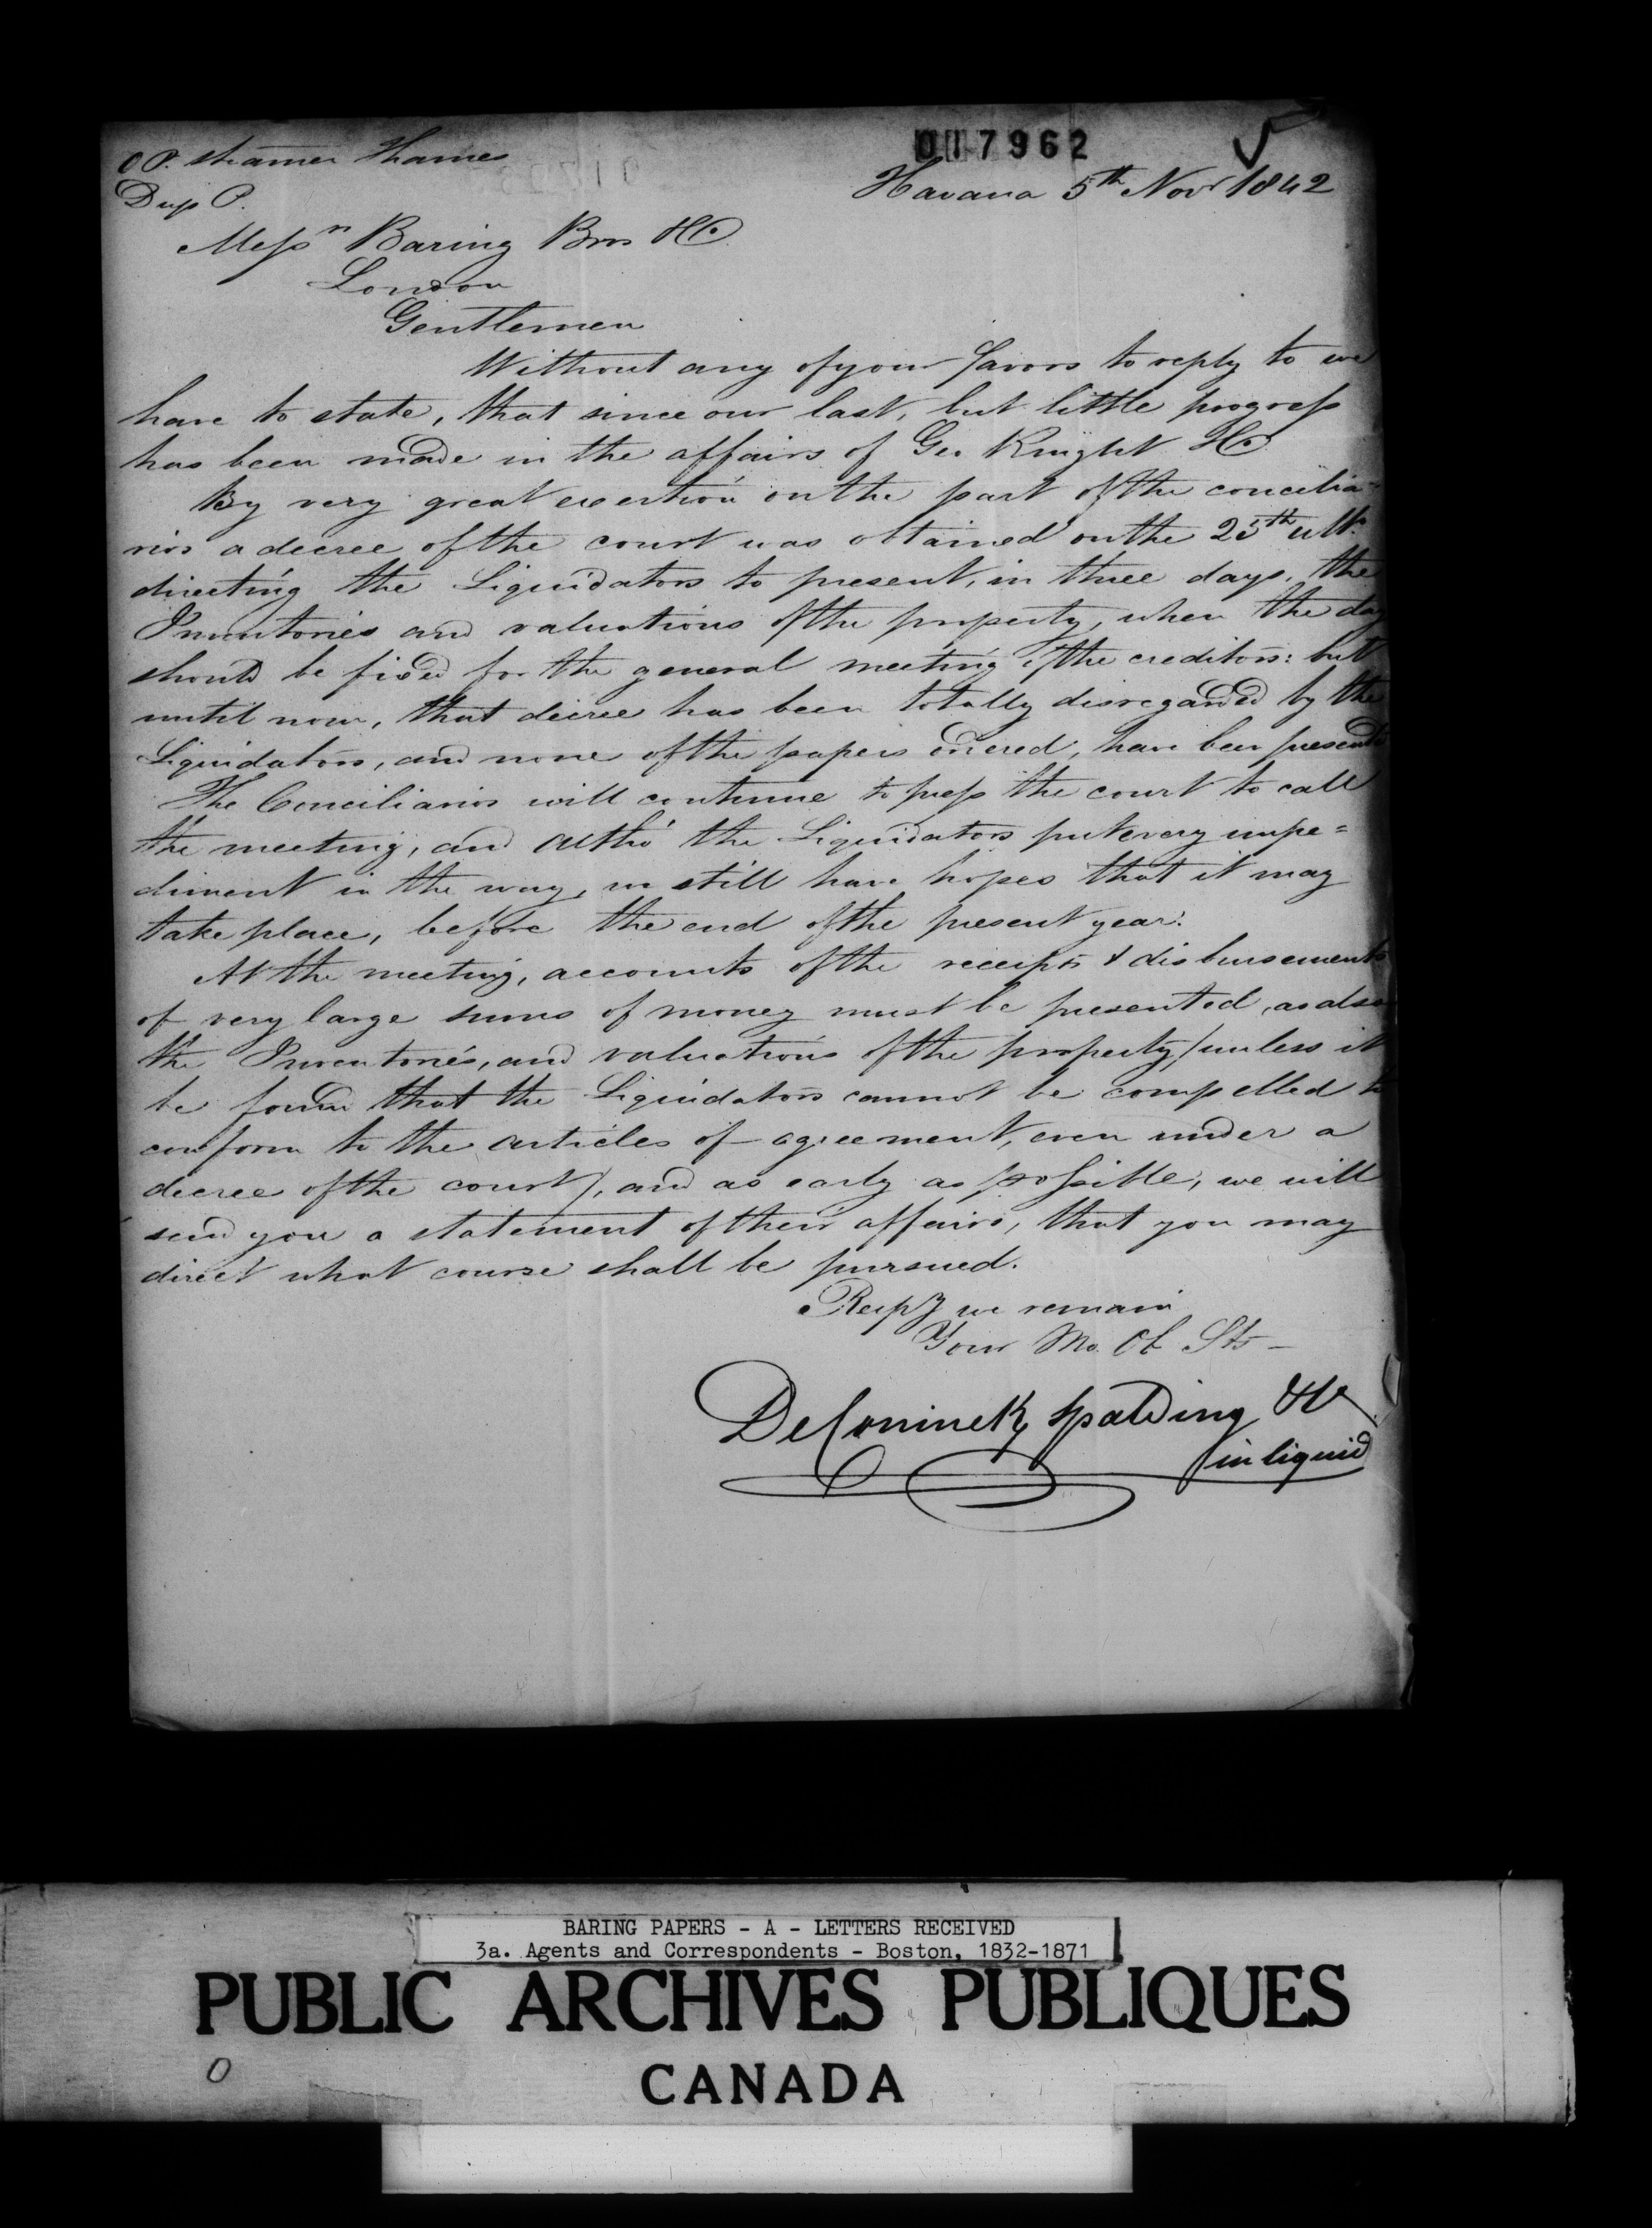 017962
O P. steamer Thames
Dup P.
Havana 5th Novr 1842
Messrs Baring Bros & Co
London
Gentlemen
Without any of your favors to reply to we
have to state, that since our last, but little progress
has been made in the affairs of Geo Knight & Co
By very great exertion on the part of the concilia=
rios a decree of the court was obtained on the 25th ulto.
directing the Liquidators to present, in three days, the
Inventories and valuations of the property, when the day
should be fixed for the general meeting of the creditors: but
until now, that decree has been totally disregarded by the
Liquidators, and none of the papers ordered, have been presented
The Conciliarios will continue to press the court to call
the meeting, and altho' the Liquidators put every impe=
diment in the way, we still have hopes that it may
take place, before the end of the present year.
At the meeting, accounts of the receipts & disbursements
of very large sums of money must be presented, as also
the Inventories, and valuations of the property, (unless it
be found that the Liquidators cannot be compelled to
conform to the articles of agreement, even under a
decree of the court), and as early as possible, we will
send you a statement of their affairs, that you may
direct what course shall be pursued.
Respy we remain
Your Mo. Ob Sts
DeConinck Spalding & Co
in liquid
BARING PAPERS - A - LETTERS RECEIVED
3a. Agents and Correspondents - Boston, 1832-1871
PUBLIC ARCHIVES PUBLIQUES
CANADA